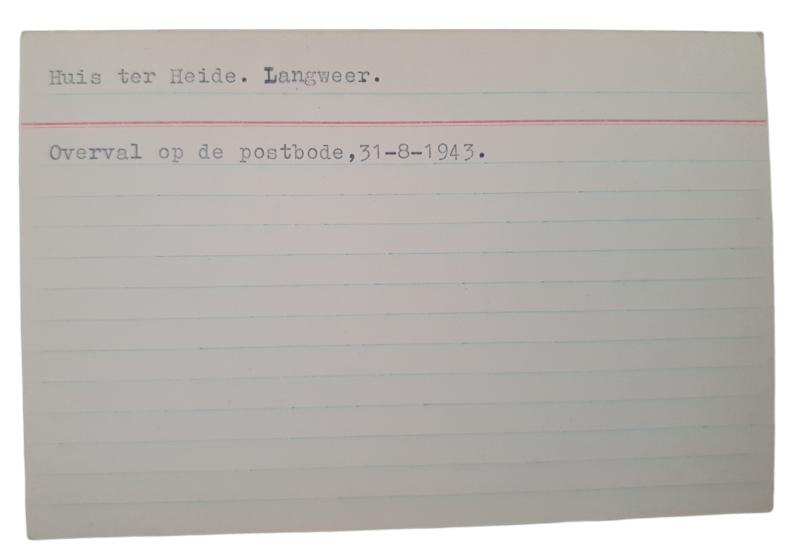 Huis ter Heide. Langweer.
Overval op de postbode,31-8-1943.